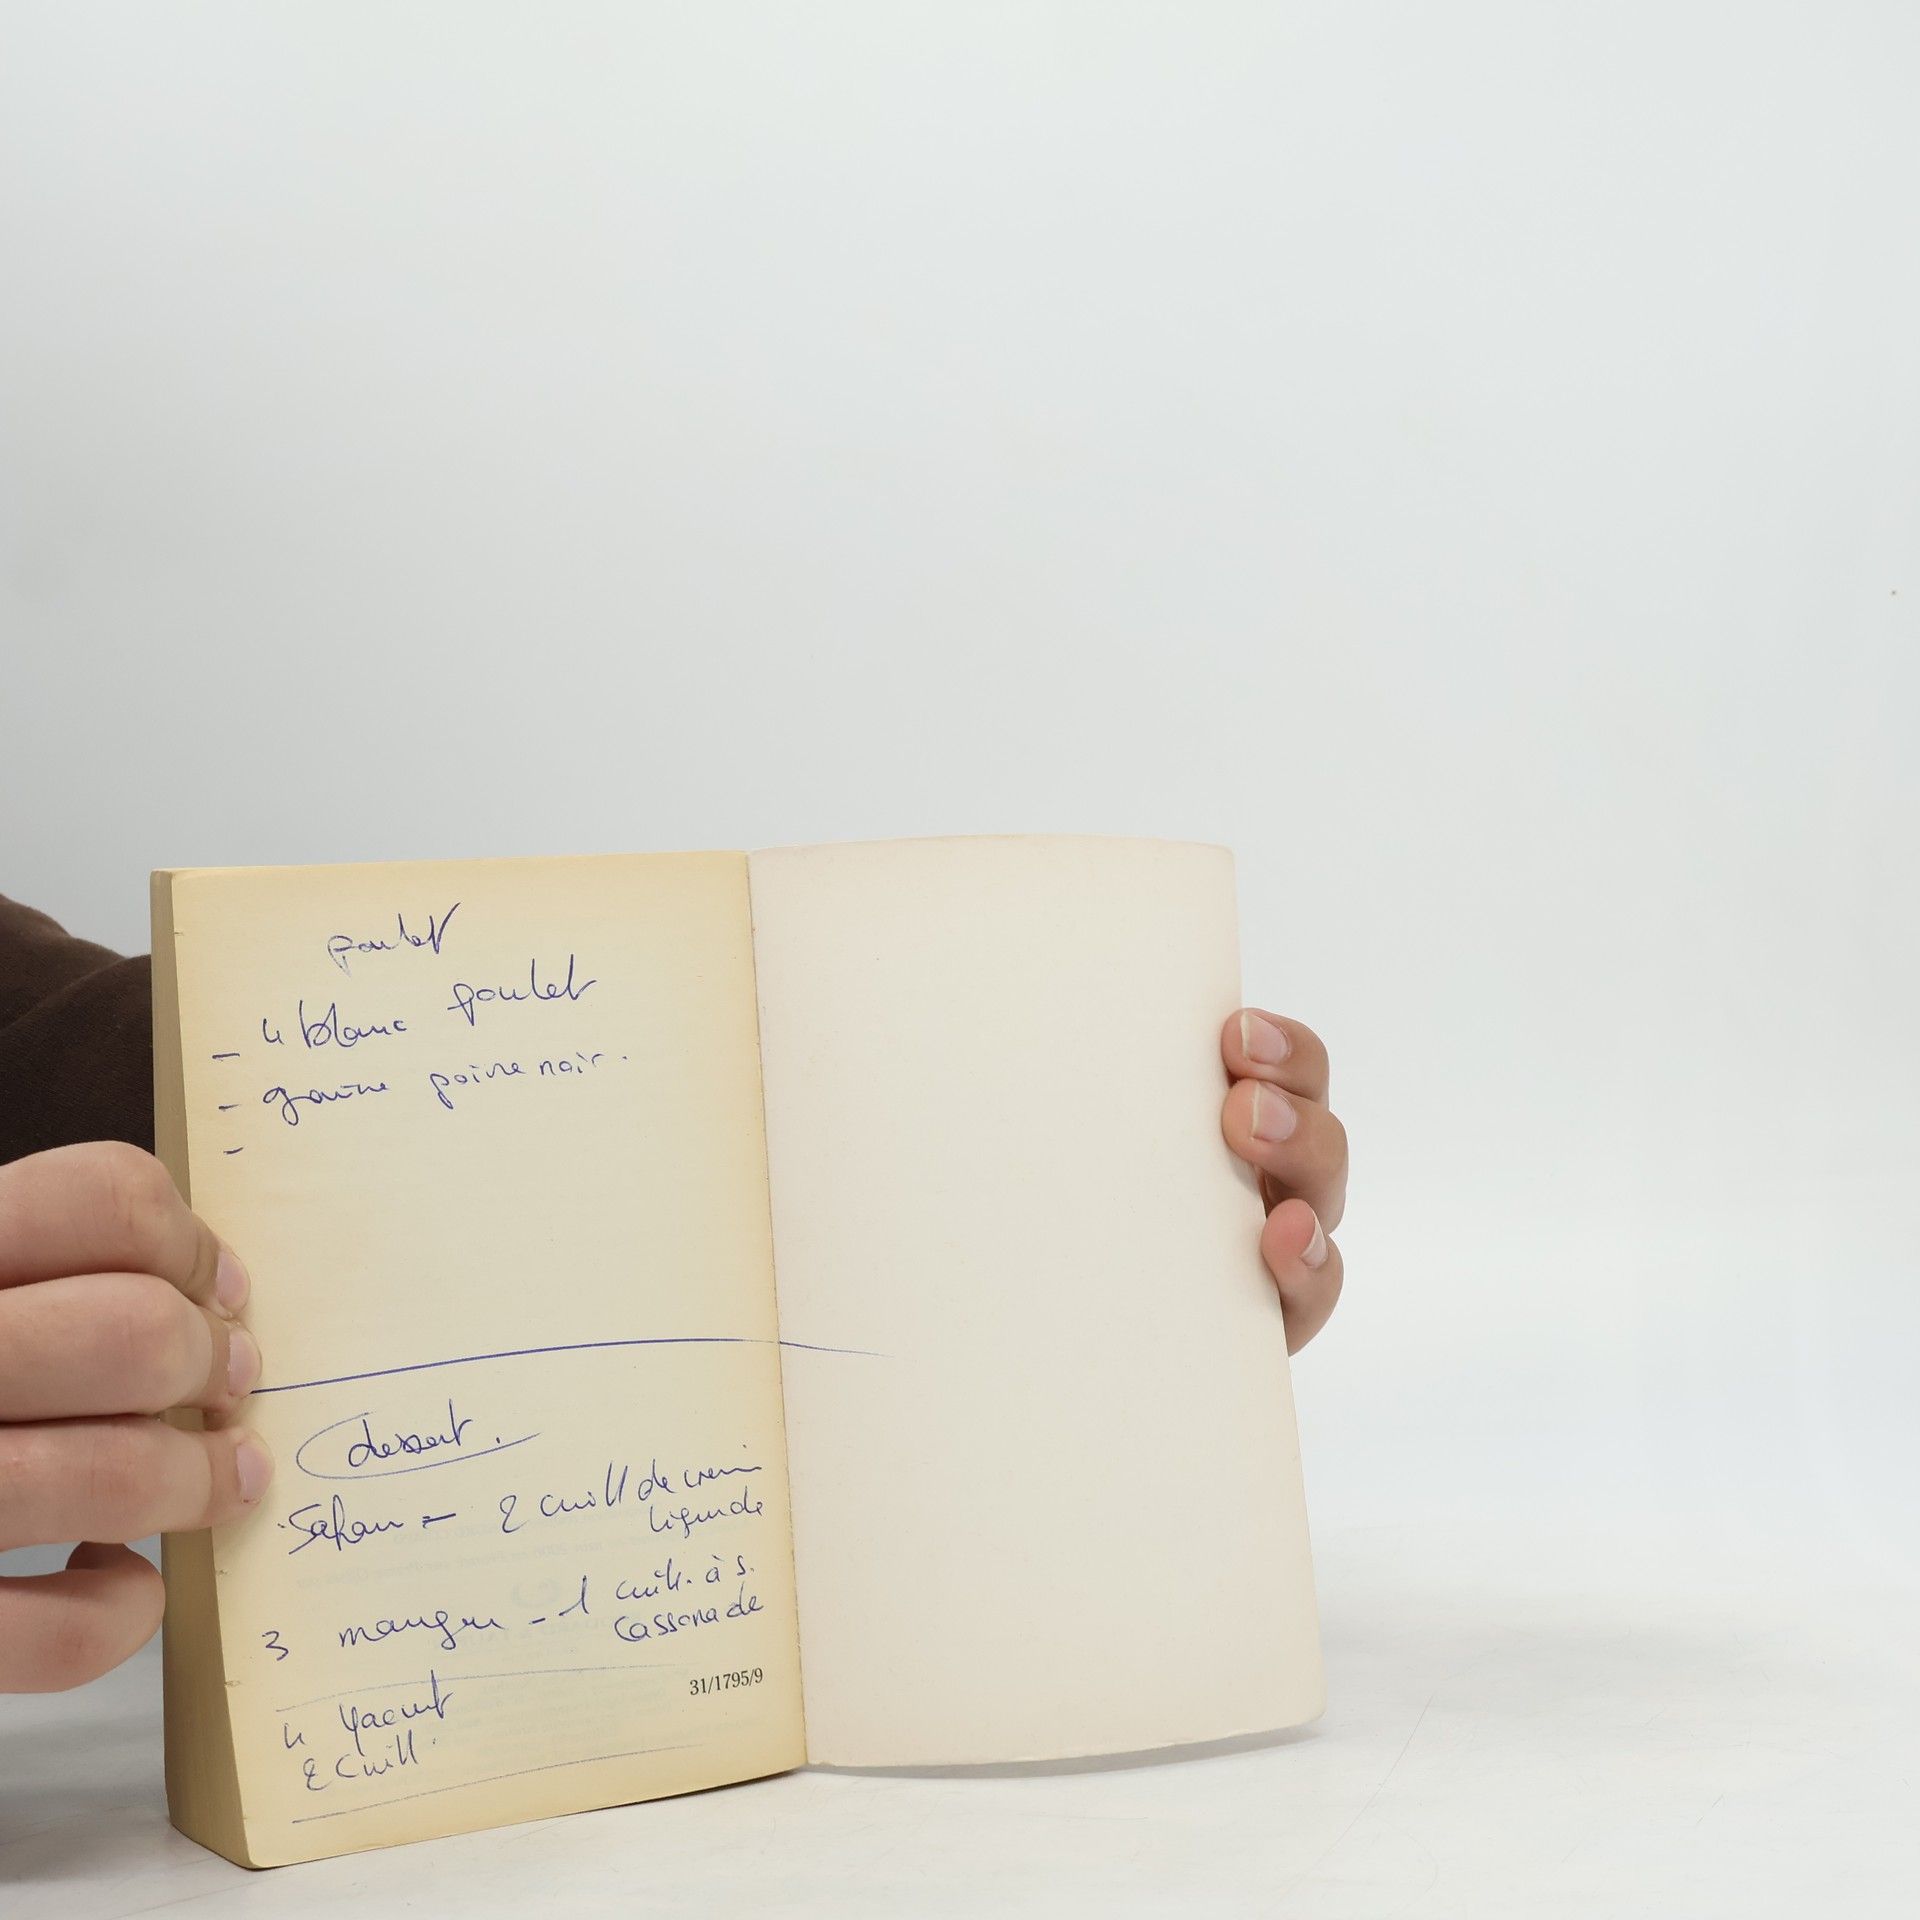 poulet
- 4 blanc poulet
- graine poivre noir.
-
dessert.
Safran = 2 cuill de crem
liquide
3 mangue - 1 cuill. à s.
cassonade
31/1795/9
4 Yaourt
2 cuill.